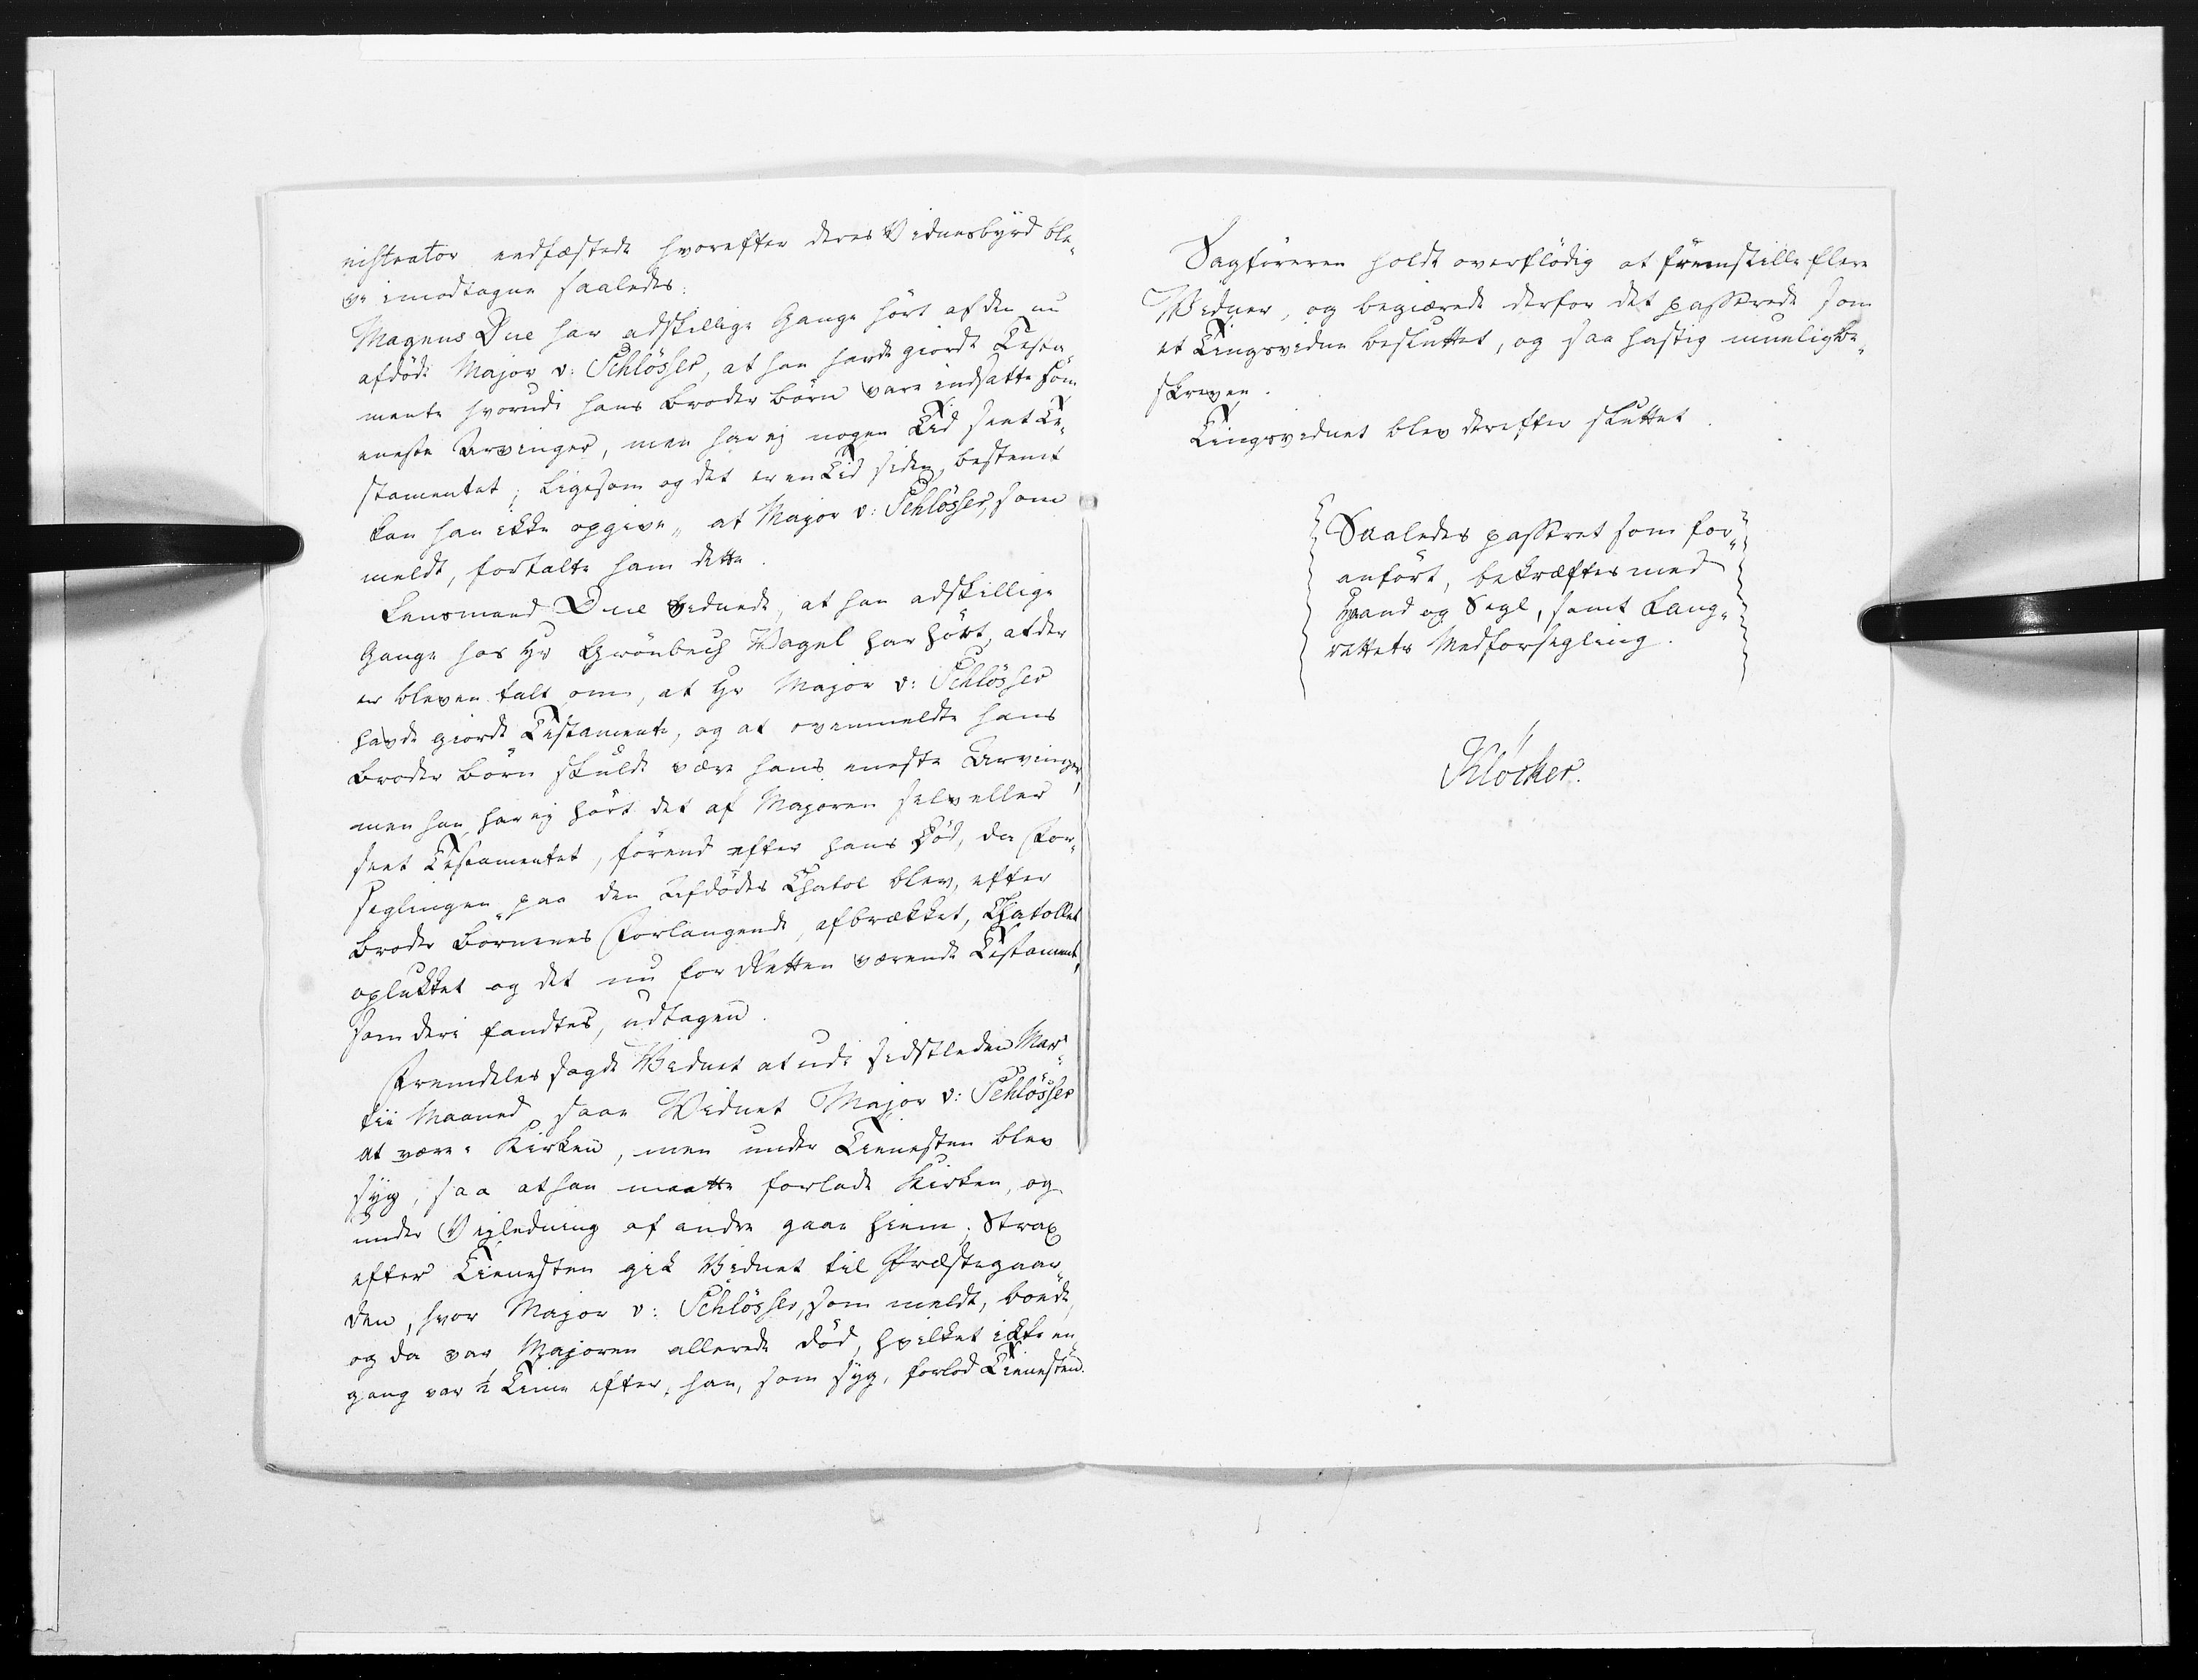 nistrator eedfæstede hvorefter deres Vidnesbyrd ble„
ve imodtagne saaledes:
Magnus Due har adskillige Gange hört af den nu
afdöde Major v: Schlösser, at han havde giordt Testa„
mente hvorudi hans Broder Börn vare indsatte som
eneste Arvinger, men har ej nogen Tid seet Te„
stamentet; ligesom og det er en Tid siden, bestemt
kan han ikke opgive, at Major v: Schlösser, som
meldt, fortalte ham dette.
Lensmand Due vidnede, at han adskillige
Gange hos Hr Grönbech Wagel har hört, at der
er bleven talt om, at Hr Major v: Schlösser
havde giordt Testamente, og at ovenmeldte hans
Broder Börn skulde være hans eneste Arvinger,
men han har ej hört det af Majoren selv eller
seet Testamentet, förend efter hans Död, da For„
seglingen paa den Afdödes Chatol blev, efter
Broder Börnenes Forlangende, afbrækket, Chatollet
oplukket og det nu for Retten værende Testament,
som deri fandtes, udtagen.
Fremdeles sagde Vidnet at udi sidstleden Mar„
tii Maaned saae Vidnet Major v: Schlösser
at være i Kirken, men under Tienesten blev
syg, saa at han maatte forlade Kirken, og
under Vejledning af andre gaae hiem; Strax
efter Tienesten gik Vidnet til Præstegaar„
den, hvor Major v: Schlösser, som meldt, boede,
og da var Majoren allerede död, hvilket ikke en„
gang var ½ Time efter, han, som syg, forlod Tienesten.
Sagföreren holdt overflödig at fremstille flere
Widner, og begiærede derfor det passerede som
et Tingsvidne besluttet, og saa hastig mueligbe„
skreven.
Tingsvidnet blev derefter sluttet.
Saaledes passeret som for„
anfört, bekræftes med
Haand og Segl, samt Laug„
rettets Medforsegling.
Klöcker.